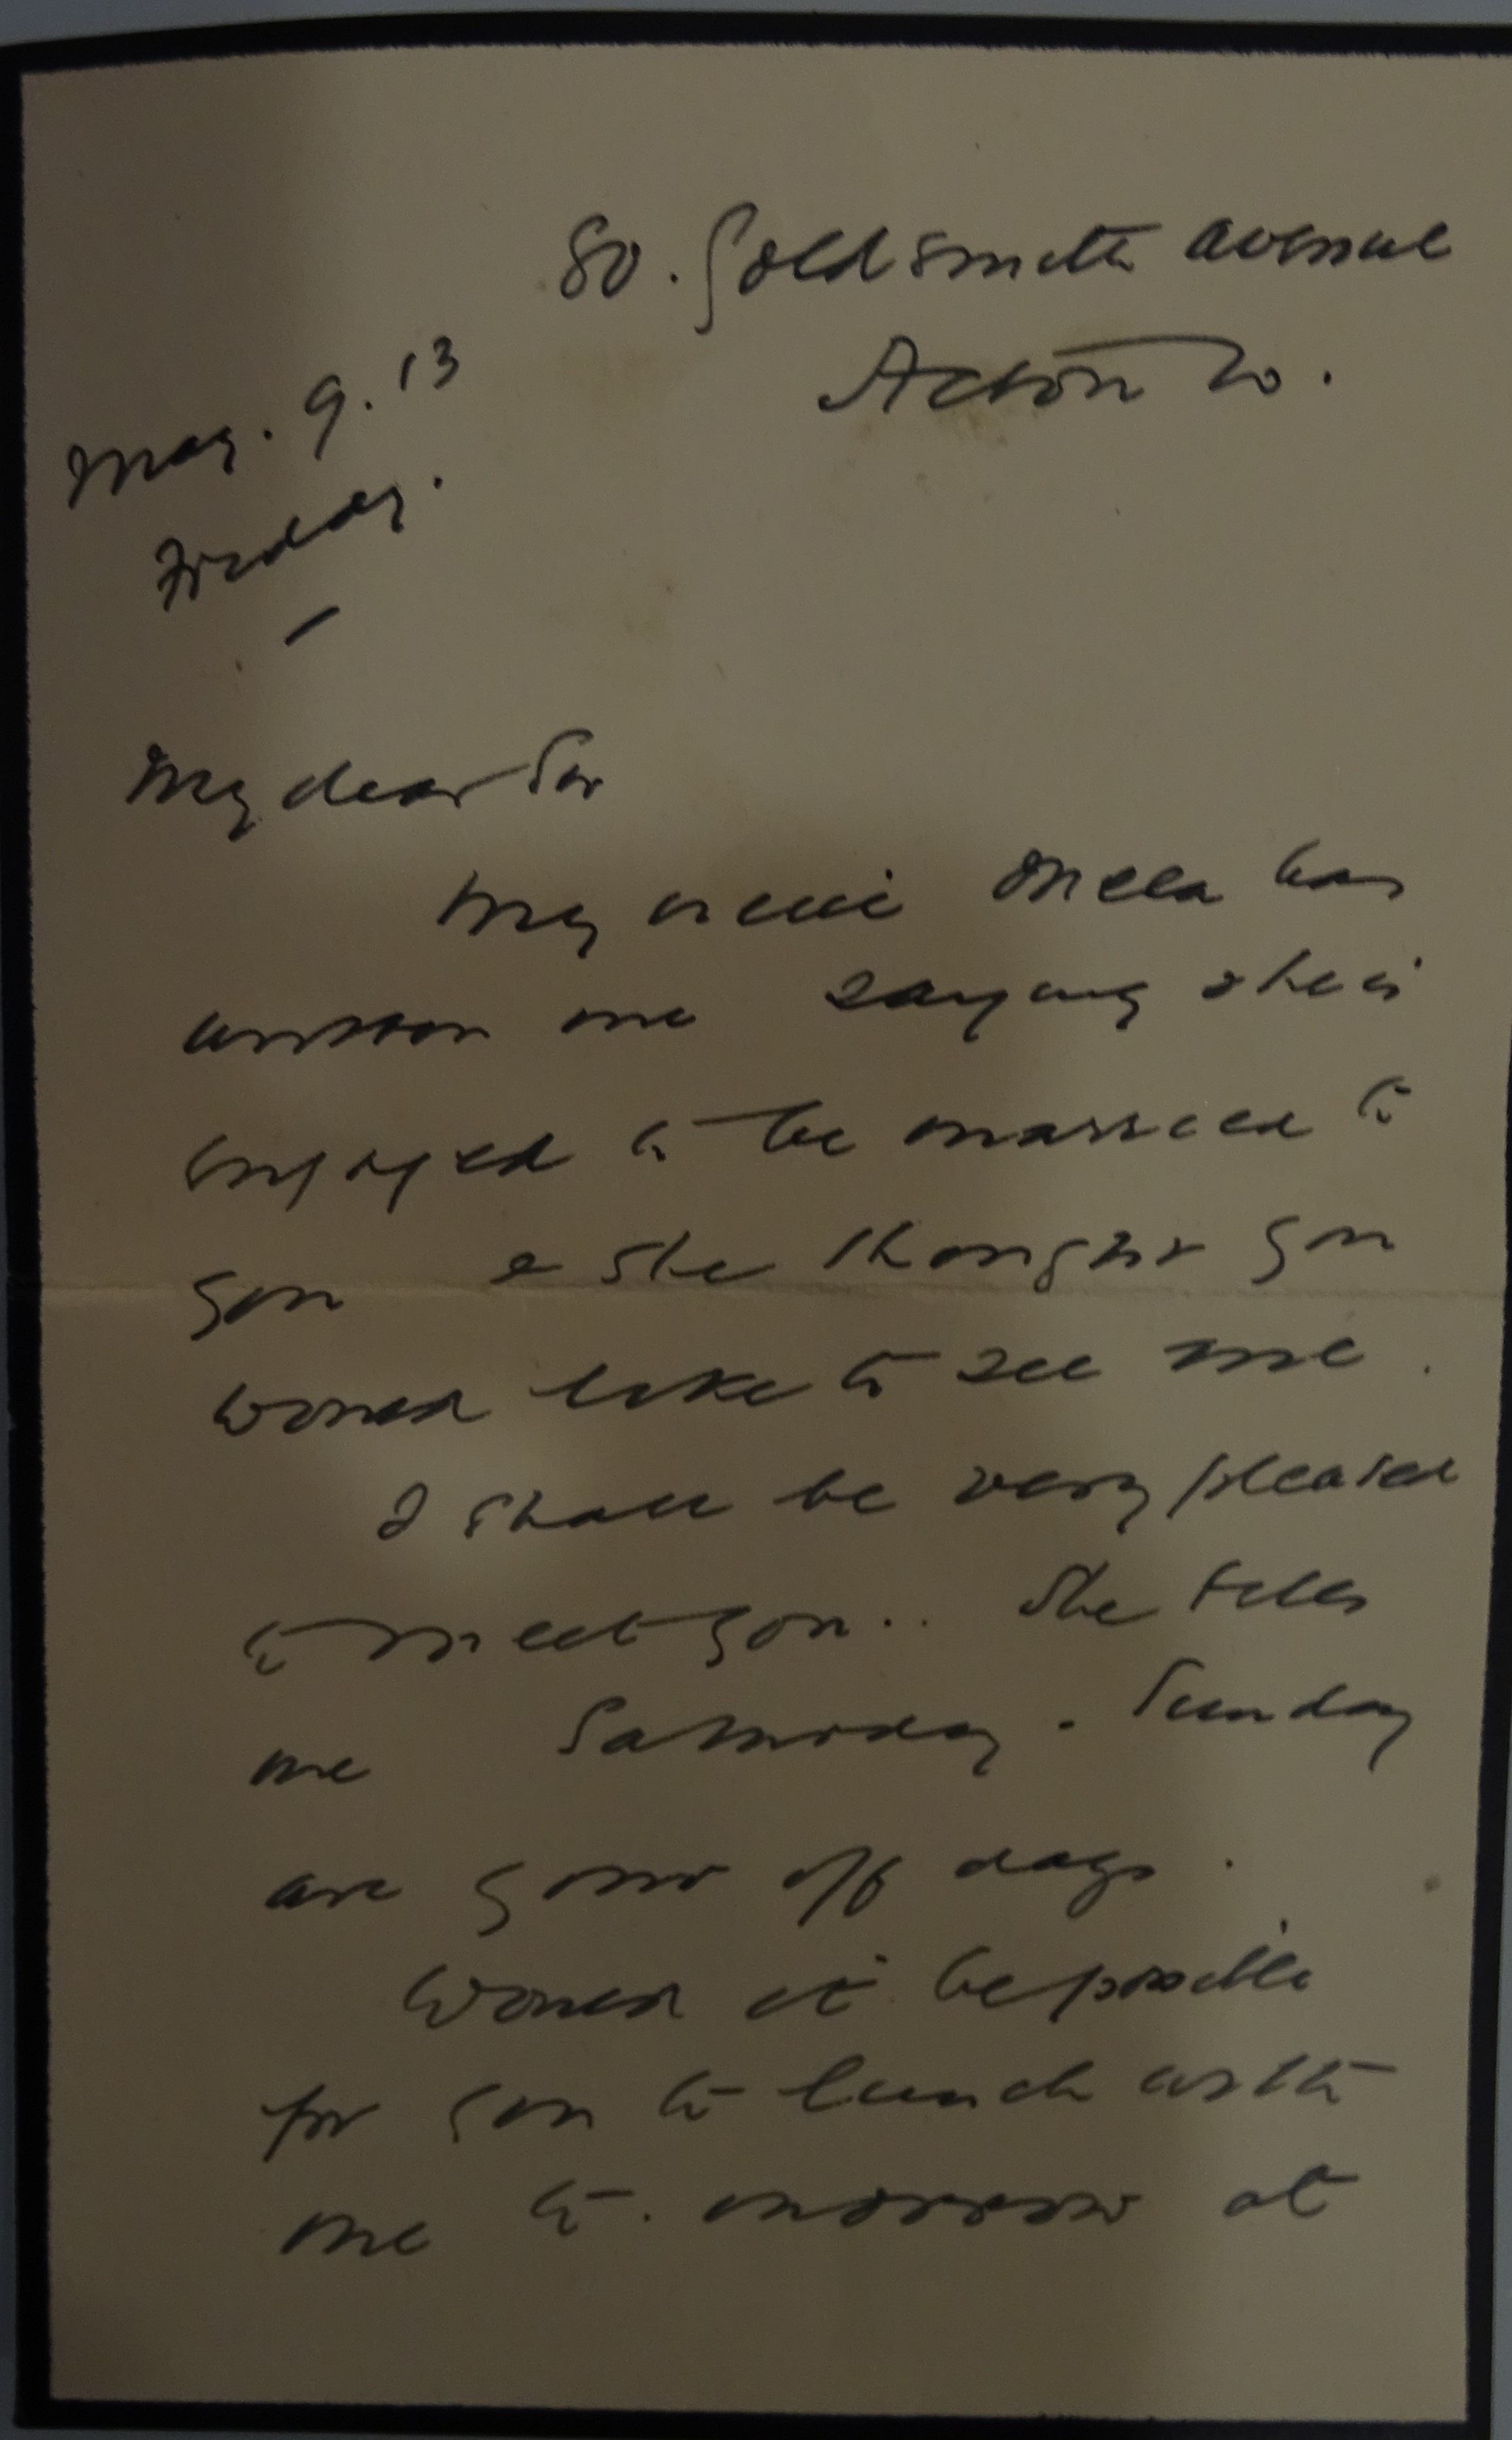 80. Goldsmith Avenue
Acton W.
May. 9. 13
Friday.
My dear Sir
My niece has
written me saying she is
engaged to be married to
you & she thought you
would like to see me.
I shall be very pleased
to meet you.. She tells
me Saturday. Sunday
are your off days.
Would it be possible
for you to lunch with
me to. morrow at